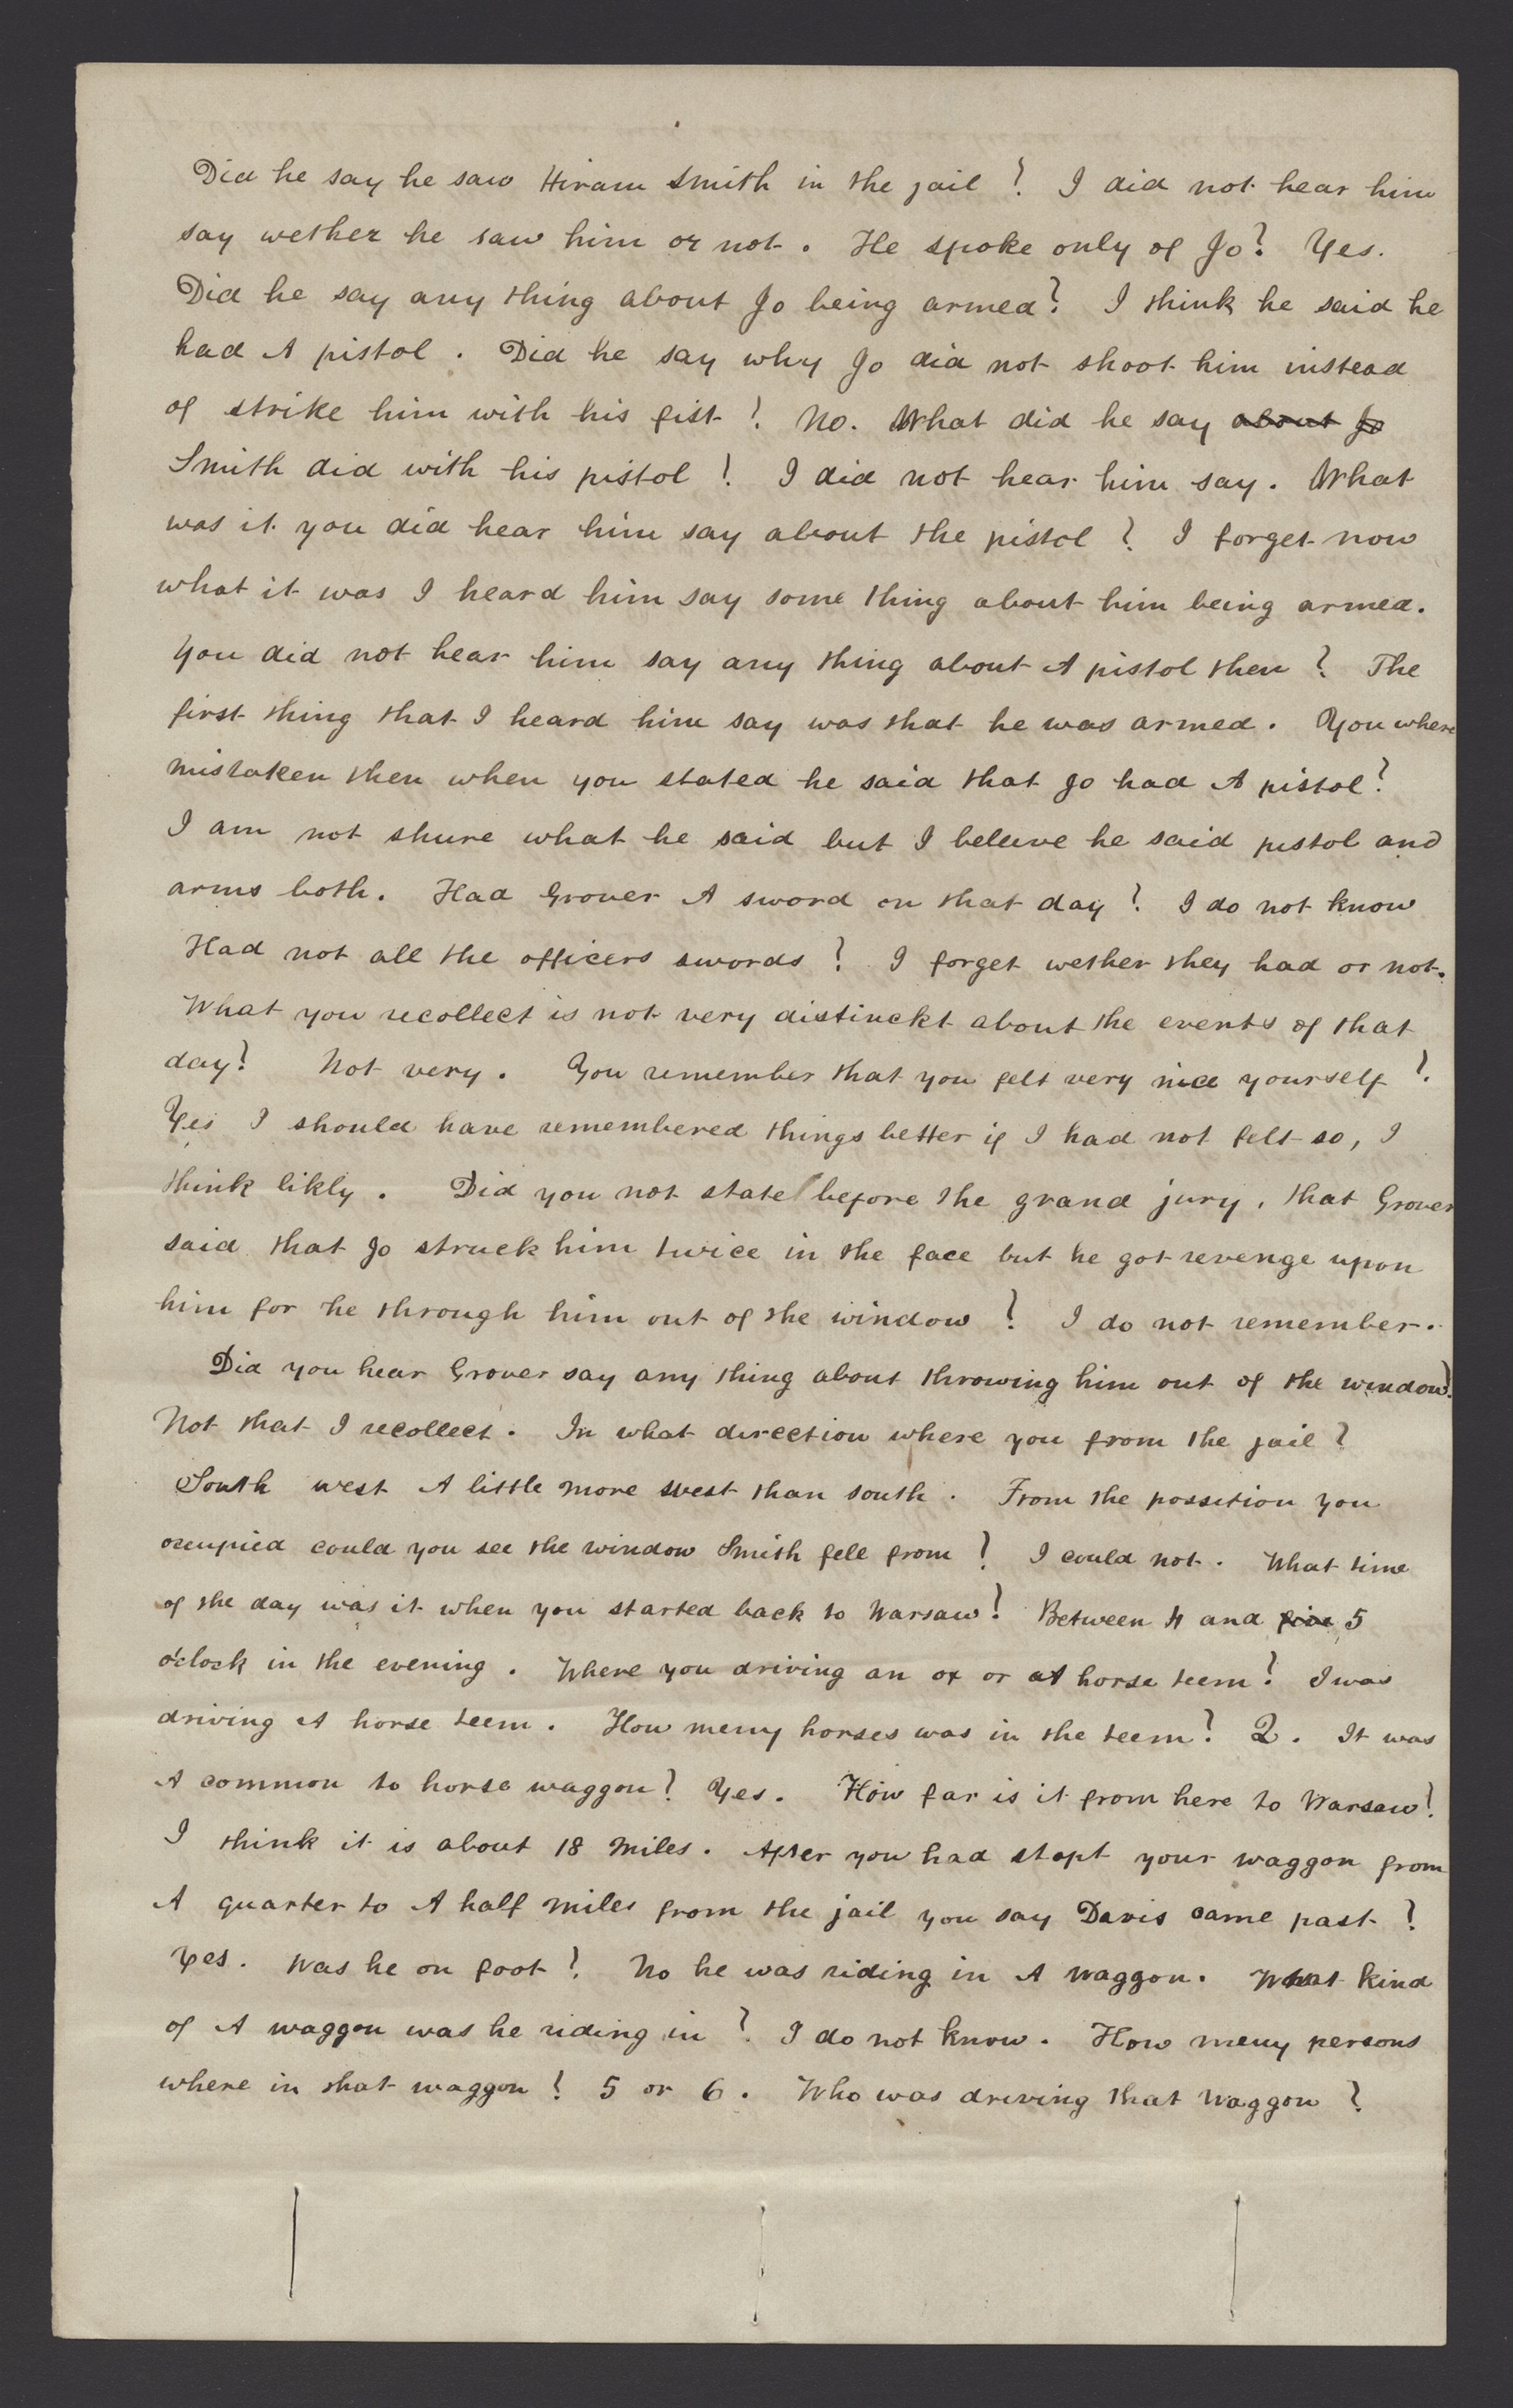 Did he say he saw Hiram Smith in the jail? I did not hear him
say wether he saw him or not. He spoke only of Jo? Yes.
Did he say any thing about Jo being armed? I think he said he
had A pistol. Did he say why Jo did not shoot him instead
of strike him with his fist? No. What did he say about Jo
Smith did with his pistol? I did not hear him say. What
was it you did hear him say about the pistol? I forget now
what it was I heard him say some thing about him being armed.
You did not hear him say any thing about A pistol then? The
first thing that I heard him say was that he was armed. You where
mistaken then when you stated he said that Jo had A pistol?
I am not shure what he said but I beleeve he said pistol and
arms both. Had Grover A sword on that day? I do not know
Had not all the officers swords? I forget wether they had or not.
What you recollect is not very distinckt about the events of that
day? Not very. You remember that you felt very nice yourself?
Yes I should have remembered things better if I had not felt so, I
think likly. Did you not state before the grand jury, that Grover
said that Jo struck him twice in the face but he got revenge upon
him for he through him out of the window? I do not remember.
Did you hear Grover say any thing about throwing him out of the window?
Not that I recollect. In what direction where you from the jail?
South west A little more west than south. From the possition you
occupied could you see the window Smith fell from? I could not. What time
of the day was it when you started back to Warsaw? Between 4 and five 5
o'clock in the evening. Where you driving an ox or A horse teem? I was
driving A horse teem. How meny horses was in the teem? 2. It was
A common to horse waggon? Yes. How far is it from here to Warsaw?
I think it is about 18 miles. After you had stopt your waggon from
A quarter to A half miles from the jail you say Davis came past?
Yes. Was he on foot? No he was riding in A waggon. What kind
of A waggon was he riding in? I do not know. How meny persons
where in that waggon? 5 or 6. Who was driving that waggon?